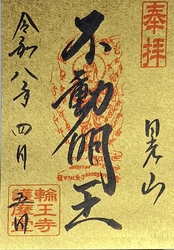 奉拝
日光山
不動明王
令和八年四月五日
輪王寺
護摩堂